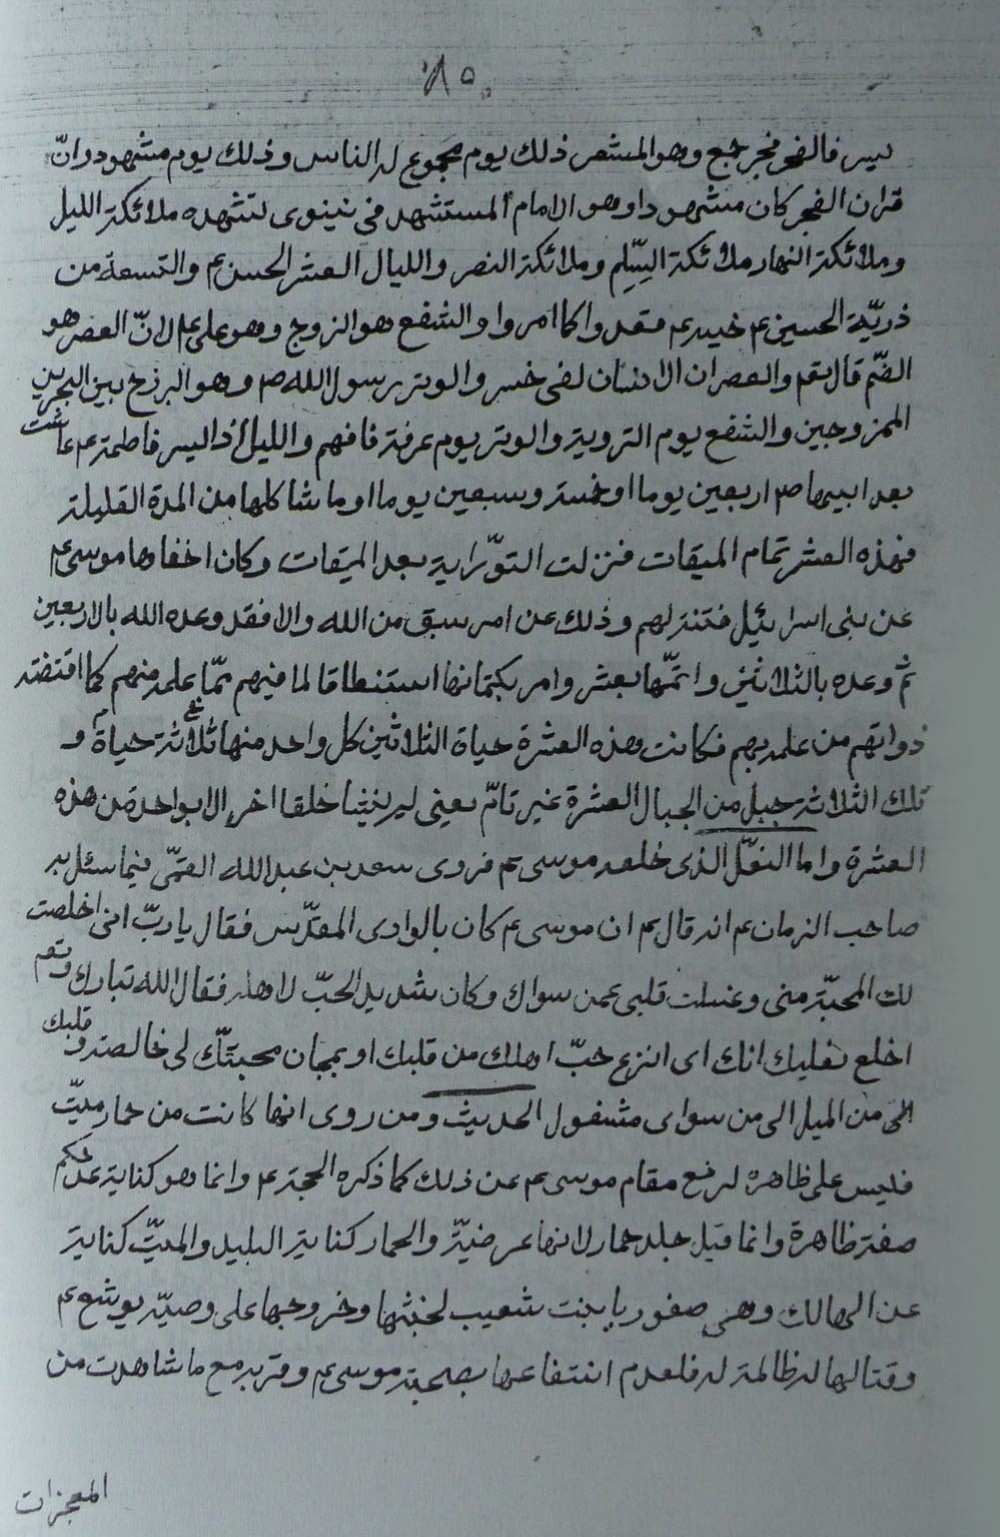 ٨٥
يسر فالفجر فجر جمع وهو المشعر ذلك يوم مجموع له الناس وذلك يوم مشهود وانّ
قران الفجر كان مشهودا وهو الامام المستشهد في نينوى تشهده ملائكة الليل
وملائكة النهار ملائكة السِّلِم وملائكة النصر والليال العشر الحسن ع والتسعة من
ذريّة الحسين ع خيره ع فعدوا كما امروا والشفع هو الزوج وهو علي ع لانّ العصر هو
الضّم قال تعم والعصر ان الانسان لفى خسر والوتر رسول الله ص وهو البرزخ بين البحرين
الممزوجين والشفع يوم التروية والوتر يوم عرفة فافهم والليل اذا ليسر فاطمة ع عاشت
بعد ابيها ص اربعين يوما او خمسة وسبعين يوما او ما شاكلها من المدة القليلة
فهذه العشر تمام الميقات فنزلت التوّراية بعد الميقات وكان اخفاها موسى ع
عن بنى اسرائيل فتنة لهم وذلك عن امر سبق من الله والا فقد وعده الله بالاربعين
ثم وعده بالثلاثين واتمّها بعشر وامر بكتمانها استنطاقا لما فيهم ممّا علمه منهم كما اقتضته
ذواتهم من علمه بهم فكانت هذه العشرة حياة الثلاثين كل واحد منها ثلاثة حياة و
تلك الثلاثة جبل من الجبال العشرة غير تامّ يعنى لم ينشا خلقا اخر الا بواحد من هذه
العشرة واما النعل الذى خلعه موسى ع فروى سعد بن عبد الله القمّى فيما سئل به
صاحب الزمان ع انه قال ع ان موسى ع كان بالوادى المقدّس فقال يا ربّ انى اخلصت
لك المحبّة منى وغسلت قلبى عمن سواك وكان شديد الحبّ لاهله فقال الله تبارك وتعم
اخلع نعليك انك اى انزع حبّ اهلك من قلبك او بمهان محبتّك لى خالصة وقلبك
من الميل الى من سواى مشغول الحديث ومن روى انها كانت من حمار ميّت
فليس على ظاهره لرفع مقام موسى ع عن ذلك كما ذكره الحجة ع وانما هو كناية عن حكم
صفة ظاهرة وانما قيل جلد حمار لانها عرضيّة والحمار كناية البليد والميّت كناية
عن الهالك وهى صفوريا بنت شعيب لخبثها وخروجها على وصيّه يوشع ع
وقتالها له ظالمة له فلعدم انتفاعها بصحبة موسى ع وقربه مع ما شاهدت من
المعجزات